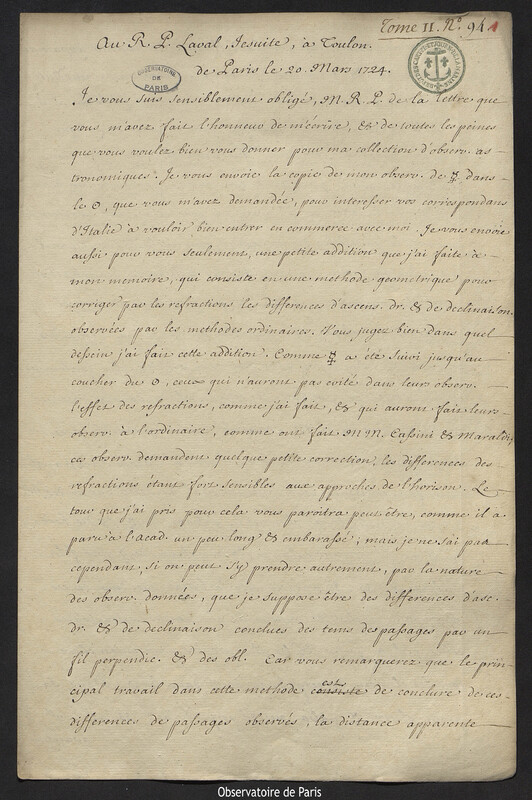 Tome II. N.º 94
Au R. P. Laval, Jesuite, à Toulon.
de Paris le 20. Mars 1724.
OBSERVATOIRE DE PARIS
Je vous suis sensiblement obligé, M. R. P. de la lettre que
vous m'avez fait l'honneur de m'écrire, & de toutes les peines
que vous voulez bien vous donner pour ma collection d'observ. as-
tronomiques. Je vous envoie la copie de mon observ. de ☿ dans
le ☉, que vous m'avez demandée, pour interesser vos correspondans
d'Italie à vouloir bien entrer en commerce avec moi. Je vous envoie
aussi pour vous seulement, une petite addition que j'ai faite à
mon memoire, qui consiste en une methode geometrique pour
corriger par les refractions les differences d'ascens. dr. & de declinaison
observées par les methodes ordinaires. Vous jugez bien dans quel
dessein j'ai fait cette addition. Comme ☿ a été suivi jusqu'au
coucher du ☉, ceux qui n'auront pas evité dans leurs observ.
l'effet des refractions, comme j'ai fait, & qui auront fait leurs
observ. à l'ordinaire, comme ont fait M.M. Cassini & Maraldi,
ces observ. demandent quelque petite correction, les differences des
refractions étant fort sensibles aux approches de l'horison. Le
tour que j'ai pris pour cela vous paroitra peut être, comme il a
paru à l'acad. un peu long & embarassé; mais je ne sai pas
cependant, si on peut s'y prendre autrement, par la nature
des observ. données, que je suppose être des differences d'asc.
dr. & de declinaison conclues des tems des passages par un
fil perpendic. & des obl. Car vous remarquerez que le prin-
cipal travail dans cette methode est de conclure de ces
differences de passages observés, la distance apparente
Observatoire de Paris